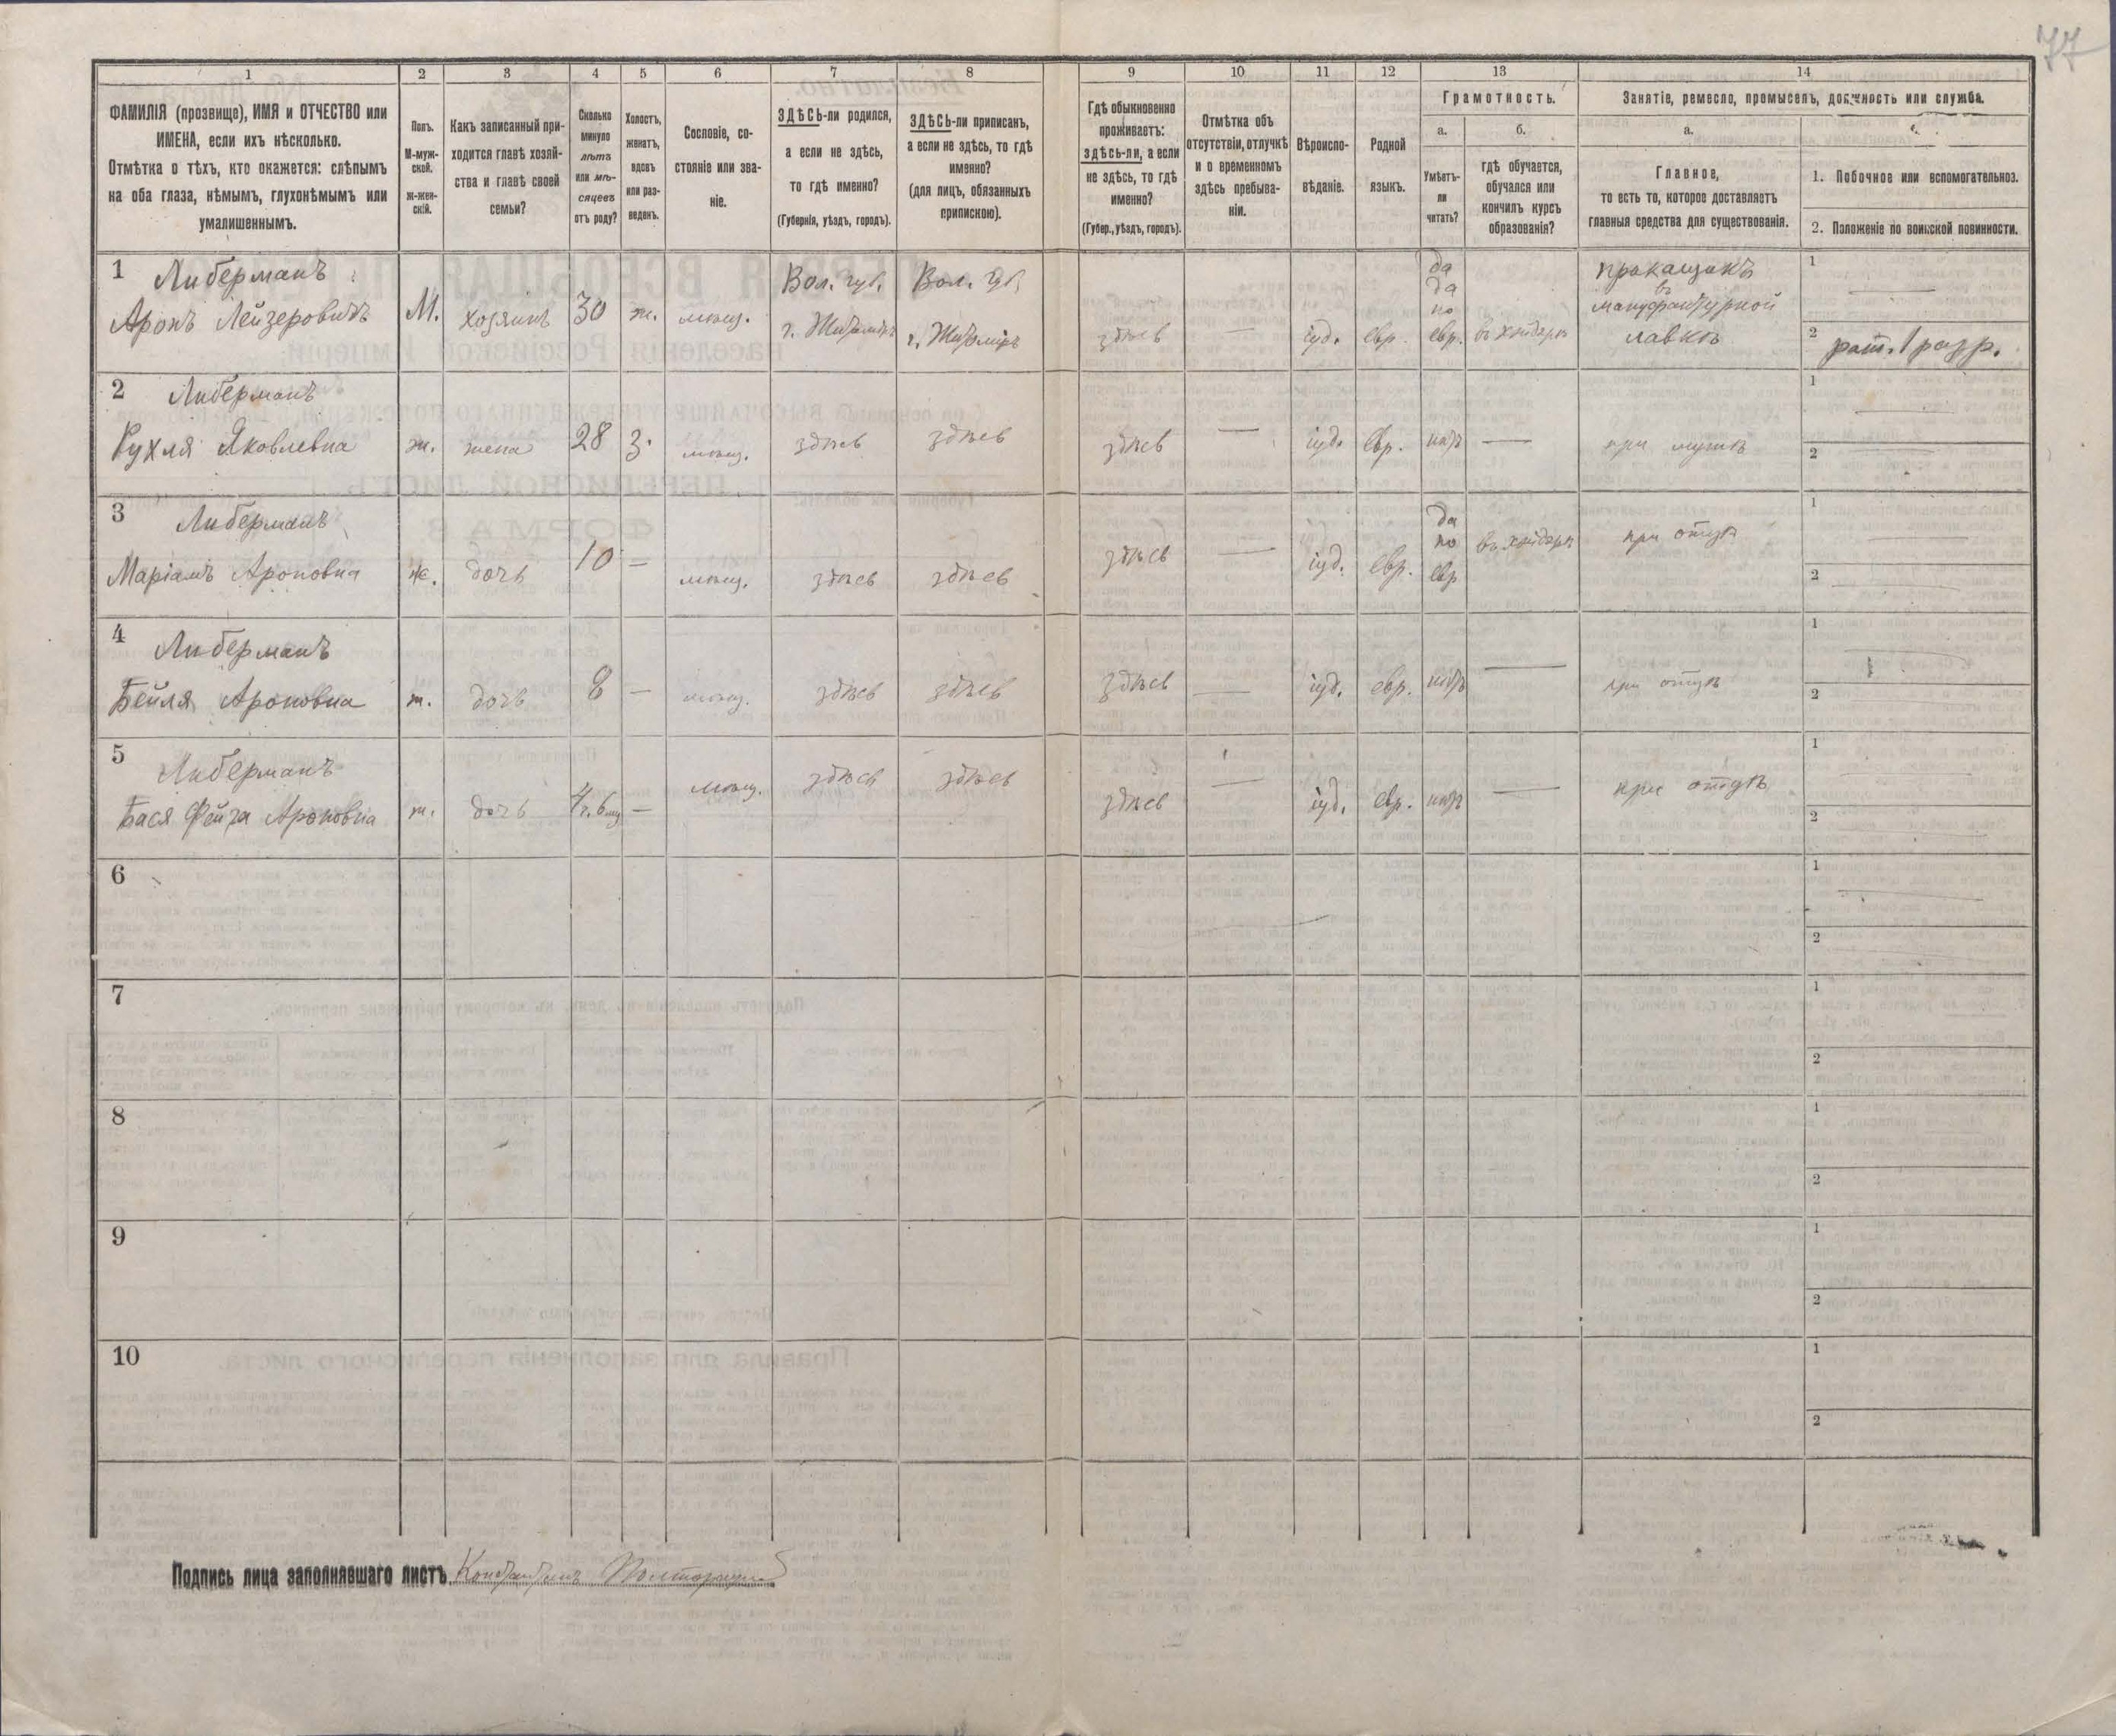 77
1 2 3 4 5 6 7 8 9 10 11 12 13 14
ФАМИЛІЯ (прозвище), ИМЯ и ОТЧЕСТВО или
ИМЕНА, если ихъ нѣсколько.
Отмѣтка о тѣхъ, кто окажется: слѣпымъ
на оба глаза, нѣмымъ, глухонѣмымъ или
умалишеннымъ.
Полъ.
М-муж-
ской.
ж-жен-
скій.
Какъ записанный при-
ходится главѣ хозяй-
ства и главѣ своей
семьи?
Сколько
минуло
лѣтъ
или мѣ-
сяцевъ
отъ роду?
Холостъ,
женатъ,
вдовъ
или раз-
веденъ.
Сословіе, со-
стояніе или зва-
ніе.
ЗДѢСЬ-ли родился,
а если не здѣсь,
то гдѣ именно?
(Губернія, уѣздъ, городъ).
ЗДѢСЬ-ли приписанъ,
а если не здѣсь, то гдѣ
именно?
(для лицъ, обязанныхъ
припискою).
Гдѣ обыкновенно
проживаетъ:
здѣсь-ли, а если
не здѣсь, то гдѣ
именно?
(Губер., уѣздъ, городъ).
Отмѣтка объ
отсутствіи, отлучкѣ
и о временномъ
здѣсь пребыва-
ніи.
Вѣроиспо-
вѣданіе.
Родной
языкъ.
Грамотность.
а.
Умѣетъ-
ли
читать?
б.
гдѣ обучается,
обучался или
кончилъ курсъ
образованія?
Занятіе, ремесло, промыселъ, должность или служба.
а.
Главное,
то есть то, которое доставляетъ
главныя средства для существованія.
1. Побочное или вспомогательное.
2. Положеніе по воинской повинности.
1 Либерманъ
Аронъ Лейзеровичъ
М.
хозяинъ
30
ж.
мѣщ.
Вол. губ.
г. Житоміръ
Вол. губ.
г. Житоміръ
здѣсь
—
іуд.
евр.
да
да
по
евр.
въ хедерѣ
прикащикъ
въ
мануфактурной
лавкѣ
1 —
2 рат. 1 разр.
2 Либерманъ
Рухля Яковлевна
ж.
жена
28
з.
мѣщ.
здѣсь
здѣсь
здѣсь
—
іуд.
евр.
нѣтъ
—
при мужѣ
1 —
2
3 Либерманъ
Маріамъ Ароновна
ж.
дочь
10
—
мѣщ.
здѣсь
здѣсь
здѣсь
—
іуд.
евр.
да
по
евр
въ хедерѣ
при отцѣ
1
2
4 Либерманъ
Бейля Ароновна
ж.
дочь
8
—
мѣщ.
здѣсь
здѣсь
здѣсь
—
іуд.
евр.
нѣтъ
—
при отцѣ
1
2
5 Либерманъ
Бася Фейга Ароновна
ж.
дочь
—
мѣщ.
здѣсь
здѣсь
здѣсь
—
іуд.
евр.
нѣтъ
—
при отцѣ
1
2
6
1
2
7
1
2
8
1
2
9
1
2
10
1
2
Подпись лица заполнявшаго листъ